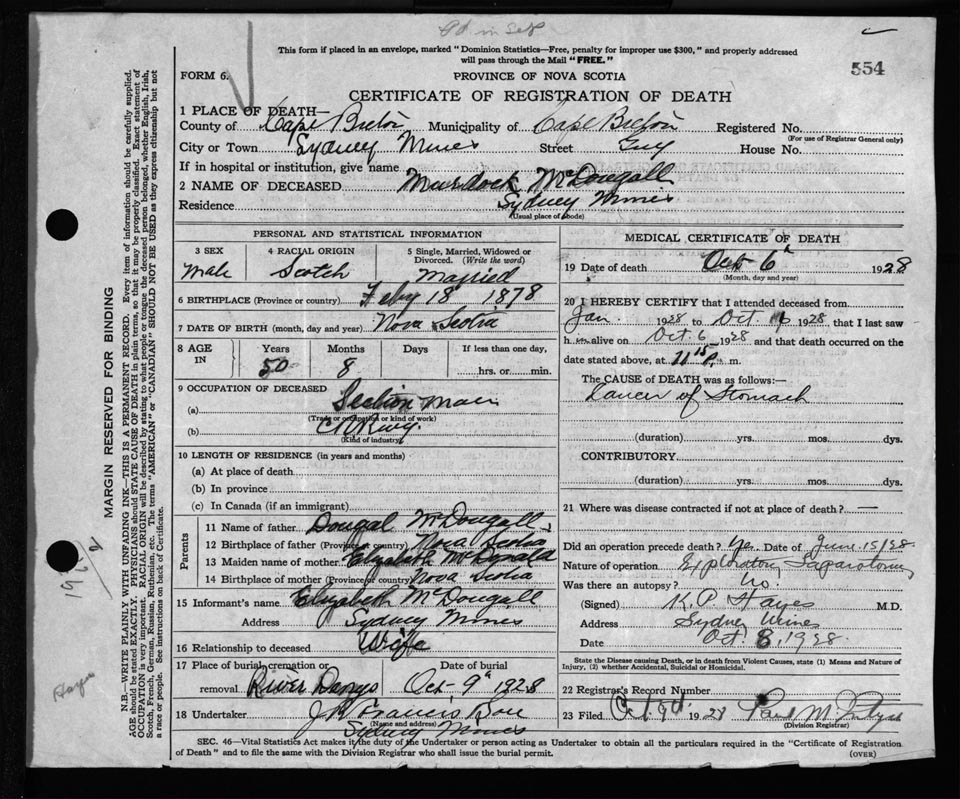 This form if placed in an envelope, marked "Dominion Statistics—Free, penalty for improper use $300," and properly addressed
will pass through the Mail "FREE."
554
FORM 6.
PROVINCE OF NOVA SCOTIA
CERTIFICATE OF REGISTRATION OF DEATH
1 PLACE OF DEATH—
County of Cape Breton Municipality of Cape Breton Registered No.
(For use of Registrar General only)
City or Town Sydney Mines Street House No.
If in hospital or institution, give name
2 NAME OF DECEASED Murdock McDougall
Residence Sydney Mines
(Usual place of abode)
PERSONAL AND STATISTICAL INFORMATION
3 SEX 4 RACIAL ORIGIN 5 Single, Married, Widowed or
Divorced. (Write the word)
Male Scotch Married
6 BIRTHPLACE (Province or country) Feby 18 1878
7 DATE OF BIRTH (month, day and year) Nova Scotia
8 AGE IN Years Months Days If less than one day,
50 8 hrs. or min.
9 OCCUPATION OF DECEASED
(a) Section Man
(Trade or occupation or kind of work)
(b) CN Rwy.
(Kind of industry)
10 LENGTH OF RESIDENCE (in years and months)
(a) At place of death
(b) In province
(c) In Canada (if an immigrant)
Parents
11 Name of father Dougal McDougall
12 Birthplace of father (Province or country) Nova Scotia
13 Maiden name of mother Elizabeth McDonald
14 Birthplace of mother (Province or country) Nova Scotia
15 Informant's name Elizabeth McDougall
Address Sydney Mines
16 Relationship to deceased Wife
17 Place of burial, cremation or Date of burial
removal River Denys Oct 9th 1928
18 Undertaker Francis
(Name and address)
Sydney Mines
MEDICAL CERTIFICATE OF DEATH
19 Date of death Oct 6th 1928
(Month, day and year)
20 I HEREBY CERTIFY that I attended deceased from
Jan. 1928 to Oct 6 1928, that I last saw
h im alive on Oct. 6 1928 and that death occurred on the
date stated above, at 11 P. m.
The CAUSE of DEATH was as follows:—
Cancer of Stomach
(duration) yrs. mos. dys.
CONTRIBUTORY
(duration) yrs. mos. dys.
21 Where was disease contracted if not at place of death? —
Did an operation precede death? Yes Date of June 15/28
Nature of operation Exploratory Laparotomy
Was there an autopsy? No.
(Signed) K. P. Hayes M.D.
Address Sydney Mines
Date Oct. 8, 1928
State the Disease causing Death, or in death from Violent Causes, state (1) Means and Nature of
Injury, (2) whether Accidental, Suicidal or Homicidal.
22 Registrar's Record Number
23 Filed Oct 9th 1928
(Division Registrar)
SEC. 46—Vital Statistics Act makes it the duty of the Undertaker or person acting as Undertaker to obtain all the particulars required in the "Certificate of Registration
of Death" and to file the same with the Division Registrar who shall issue the burial permit.
(OVER)
MARGIN RESERVED FOR BINDING
N.B.—WRITE PLAINLY WITH UNFADING INK—THIS IS A PERMANENT RECORD. Every item of information should be carefully supplied.
AGE should be stated EXACTLY. PHYSICIANS should STATE CAUSE OF DEATH in plain terms, so that it may be properly classified. Exact statement of
OCCUPATION is very important. RACIAL ORIGIN will be described by stating to what people or tongue the deceased person belonged, whether English, Irish,
Scotch, French, German, Russian, Ruthenian, etc. The terms "AMERICAN" or "CANADIAN" SHOULD NOT BE USED as they express citizenship but not
a race or people. See instructions on back of Certificate.
Hayes